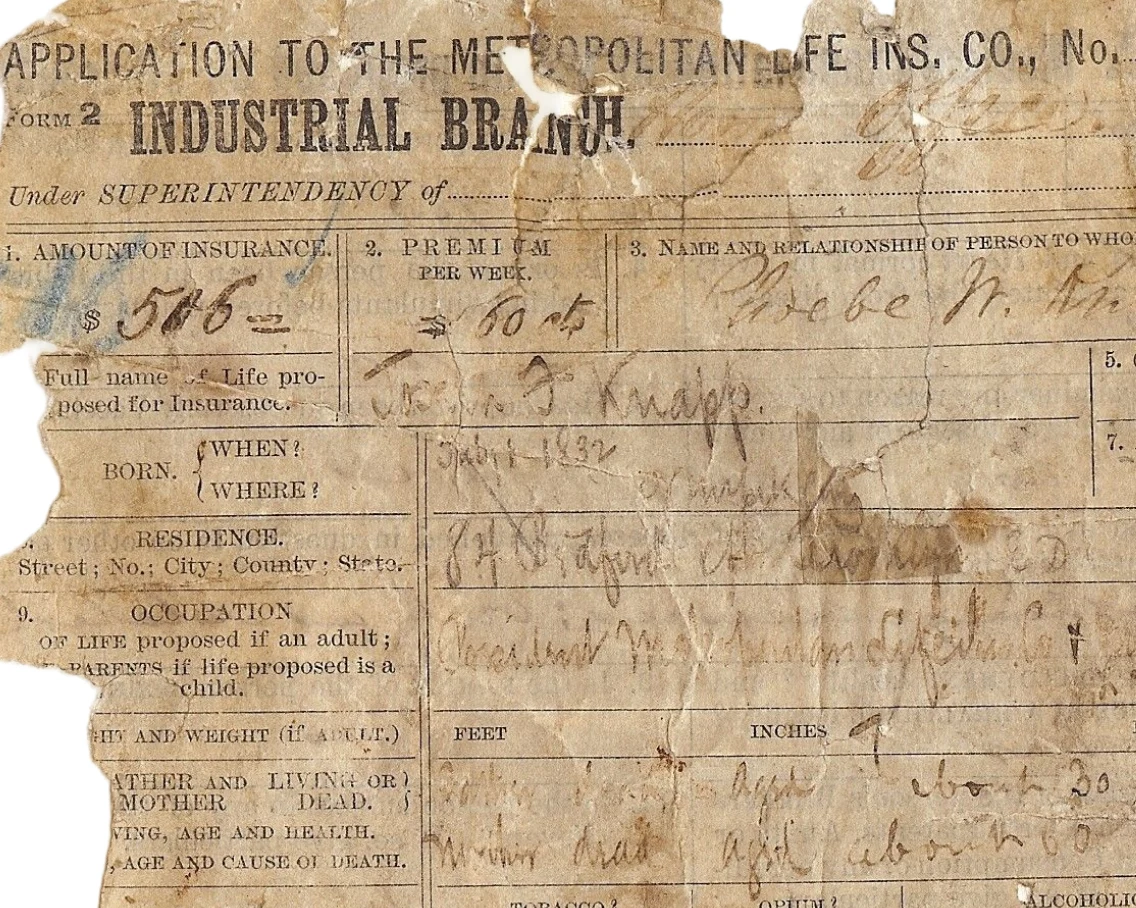 APPLICATION TO THE METROPOLITAN LIFE INS. CO., No.
FORM 2 INDUSTRIAL BRANCH.
Under SUPERINTENDENCY of
1. AMOUNT OF INSURANCE. 2. PREMIUM PER WEEK. 3. NAME AND RELATIONSHIP OF PERSON TO WHO
$ $ 60 cts Phoebe W. Kn
Full name of Life pro-
posed for Insurance.
F Knapp. 5.
BORN. { WHEN? 1832 7.
WHERE?
RESIDENCE.
Street; No.; City; County; State.
84 Brooklyn E D
9. OCCUPATION
OF LIFE proposed if an adult;
PARENTS if life proposed is a
child.
President Metropolitan Life Ins. Co
HT AND WEIGHT (if ADULT.) FEET INCHES 9
ATHER AND LIVING OR
MOTHER DEAD.
Father Aged about 30
VING, AGE AND HEALTH.
, AGE AND CAUSE OF DEATH.
Mother dead aged about 60
TOBACCO? OPIUM? ALCOHOLIC